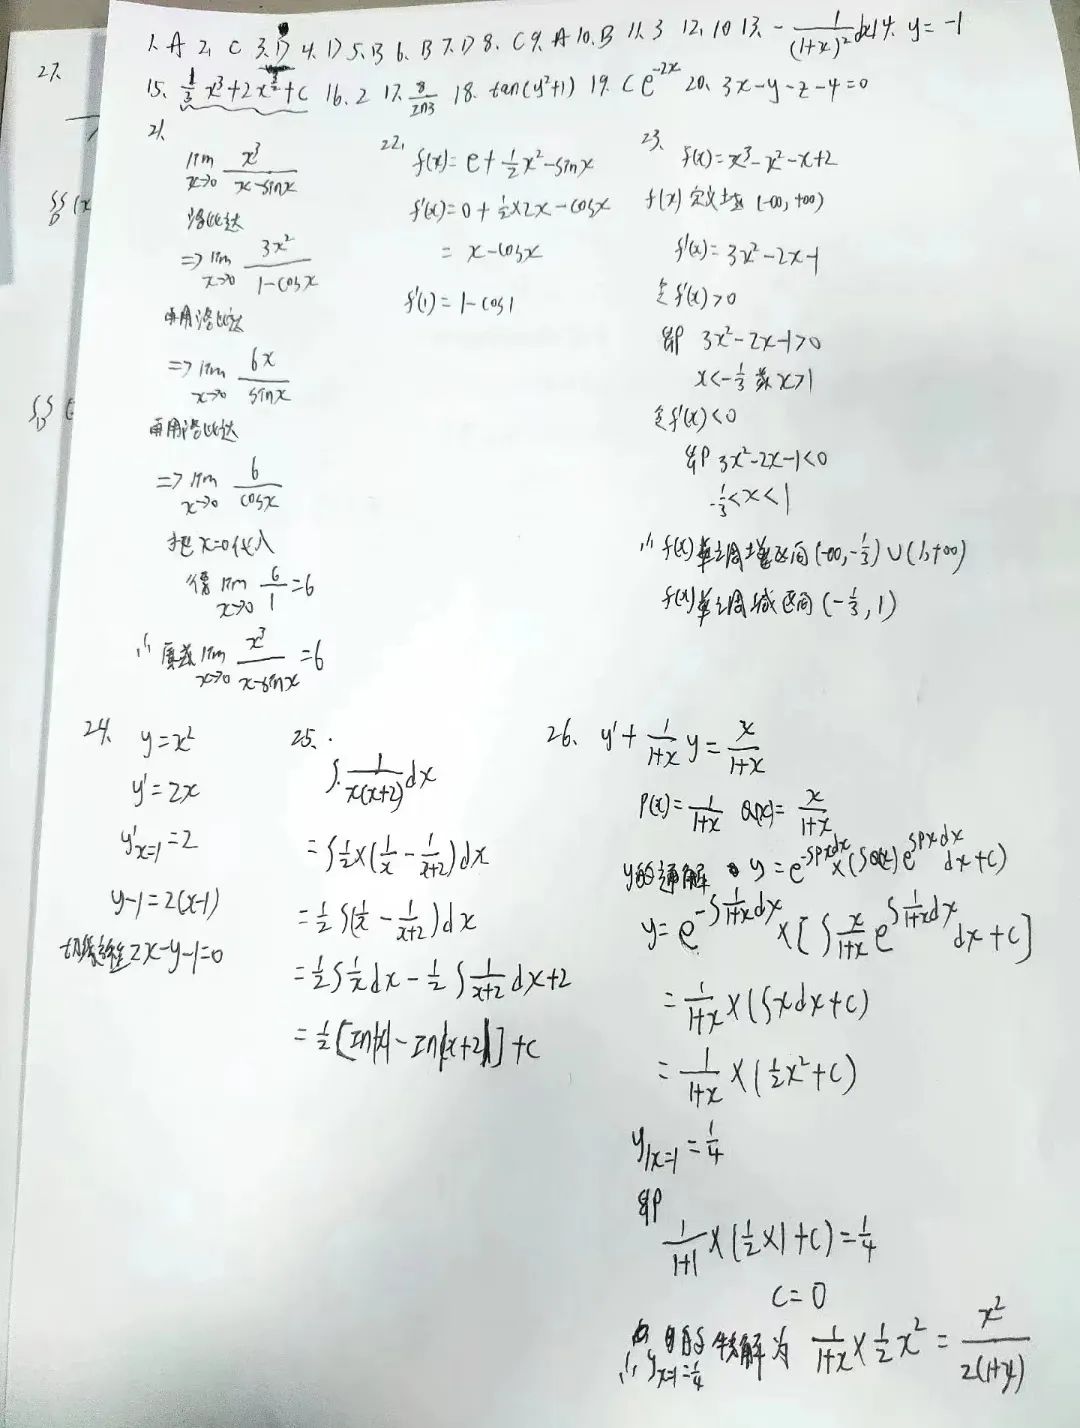 1. A 2. C 3. D 4. D 5. B 6. B 7. D 8. C 9. A 10. B 11. 3 12. 10 13. -1/(1+x)² dx 14. y=-1
27.
15. 1/3 x³+2x^(3/2)+C 16. 2 17. 8/ln3 18. tan(y²+1) 19. Ce^(-2x) 20. 3x-y-z-4=0
21.
lim x→0 x³/(x-sinx)
洛必达
=> lim x→0 3x²/(1-cosx)
再用洛必达
=> lim x→0 6x/sinx
再用洛必达
=> lim x→0 6/cosx
把x=0代入
得 lim x→0 6/1=6
∴ 原式 lim x→0 x³/(x-sinx)=6
22.
f(x)=e+1/2x²-sinx
f'(x)=0+1/2×2x-cosx
=x-cosx
f'(1)=1-cos1
23.
f(x)=x³-x²-x+2
f(x)定义域(-∞,+∞)
f'(x)=3x²-2x-1
令f'(x)>0
即 3x²-2x-1>0
x<-1/3 或 x>1
令f'(x)<0
即 3x²-2x-1<0
-1/3<x<1
∴ f(x)单调增区间(-∞,-1/3)∪(1,+∞)
f(x)单调减区间(-1/3,1)
∬D (x
∬D
24. y=x²
y'=2x
y'x=1=2
y-1=2(x-1)
2x-y-1=0
25.
∫1/(x(x+2))dx
=∫1/2×(1/x-1/(x+2))dx
=1/2∫(1/x-1/(x+2))dx
=1/2∫1/x dx-1/2∫1/(x+2)dx+2
=1/2[ln|x|-ln|x+2|]+C
26. y'+1/(1+x) y=x/(1+x)
P(x)=1/(1+x) Q(x)=x/(1+x)
y的通解 y=e^(-∫Pxdx)×(∫Q(x)e^(∫Pxdx)dx+C)
y=e^(-∫1/(1+x)dx)×[∫x/(1+x) e^(∫1/(1+x)dx)dx+C]
=1/(1+x)×(∫xdx+C)
=1/(1+x)×(1/2x²+C)
y|x=1=1/4
即
1/(1+1)×(1/2×1+C)=1/4
C=0
∴ yx=1=1/4 的特解为 1/(1+x)×1/2x²=x²/(2(1+x))